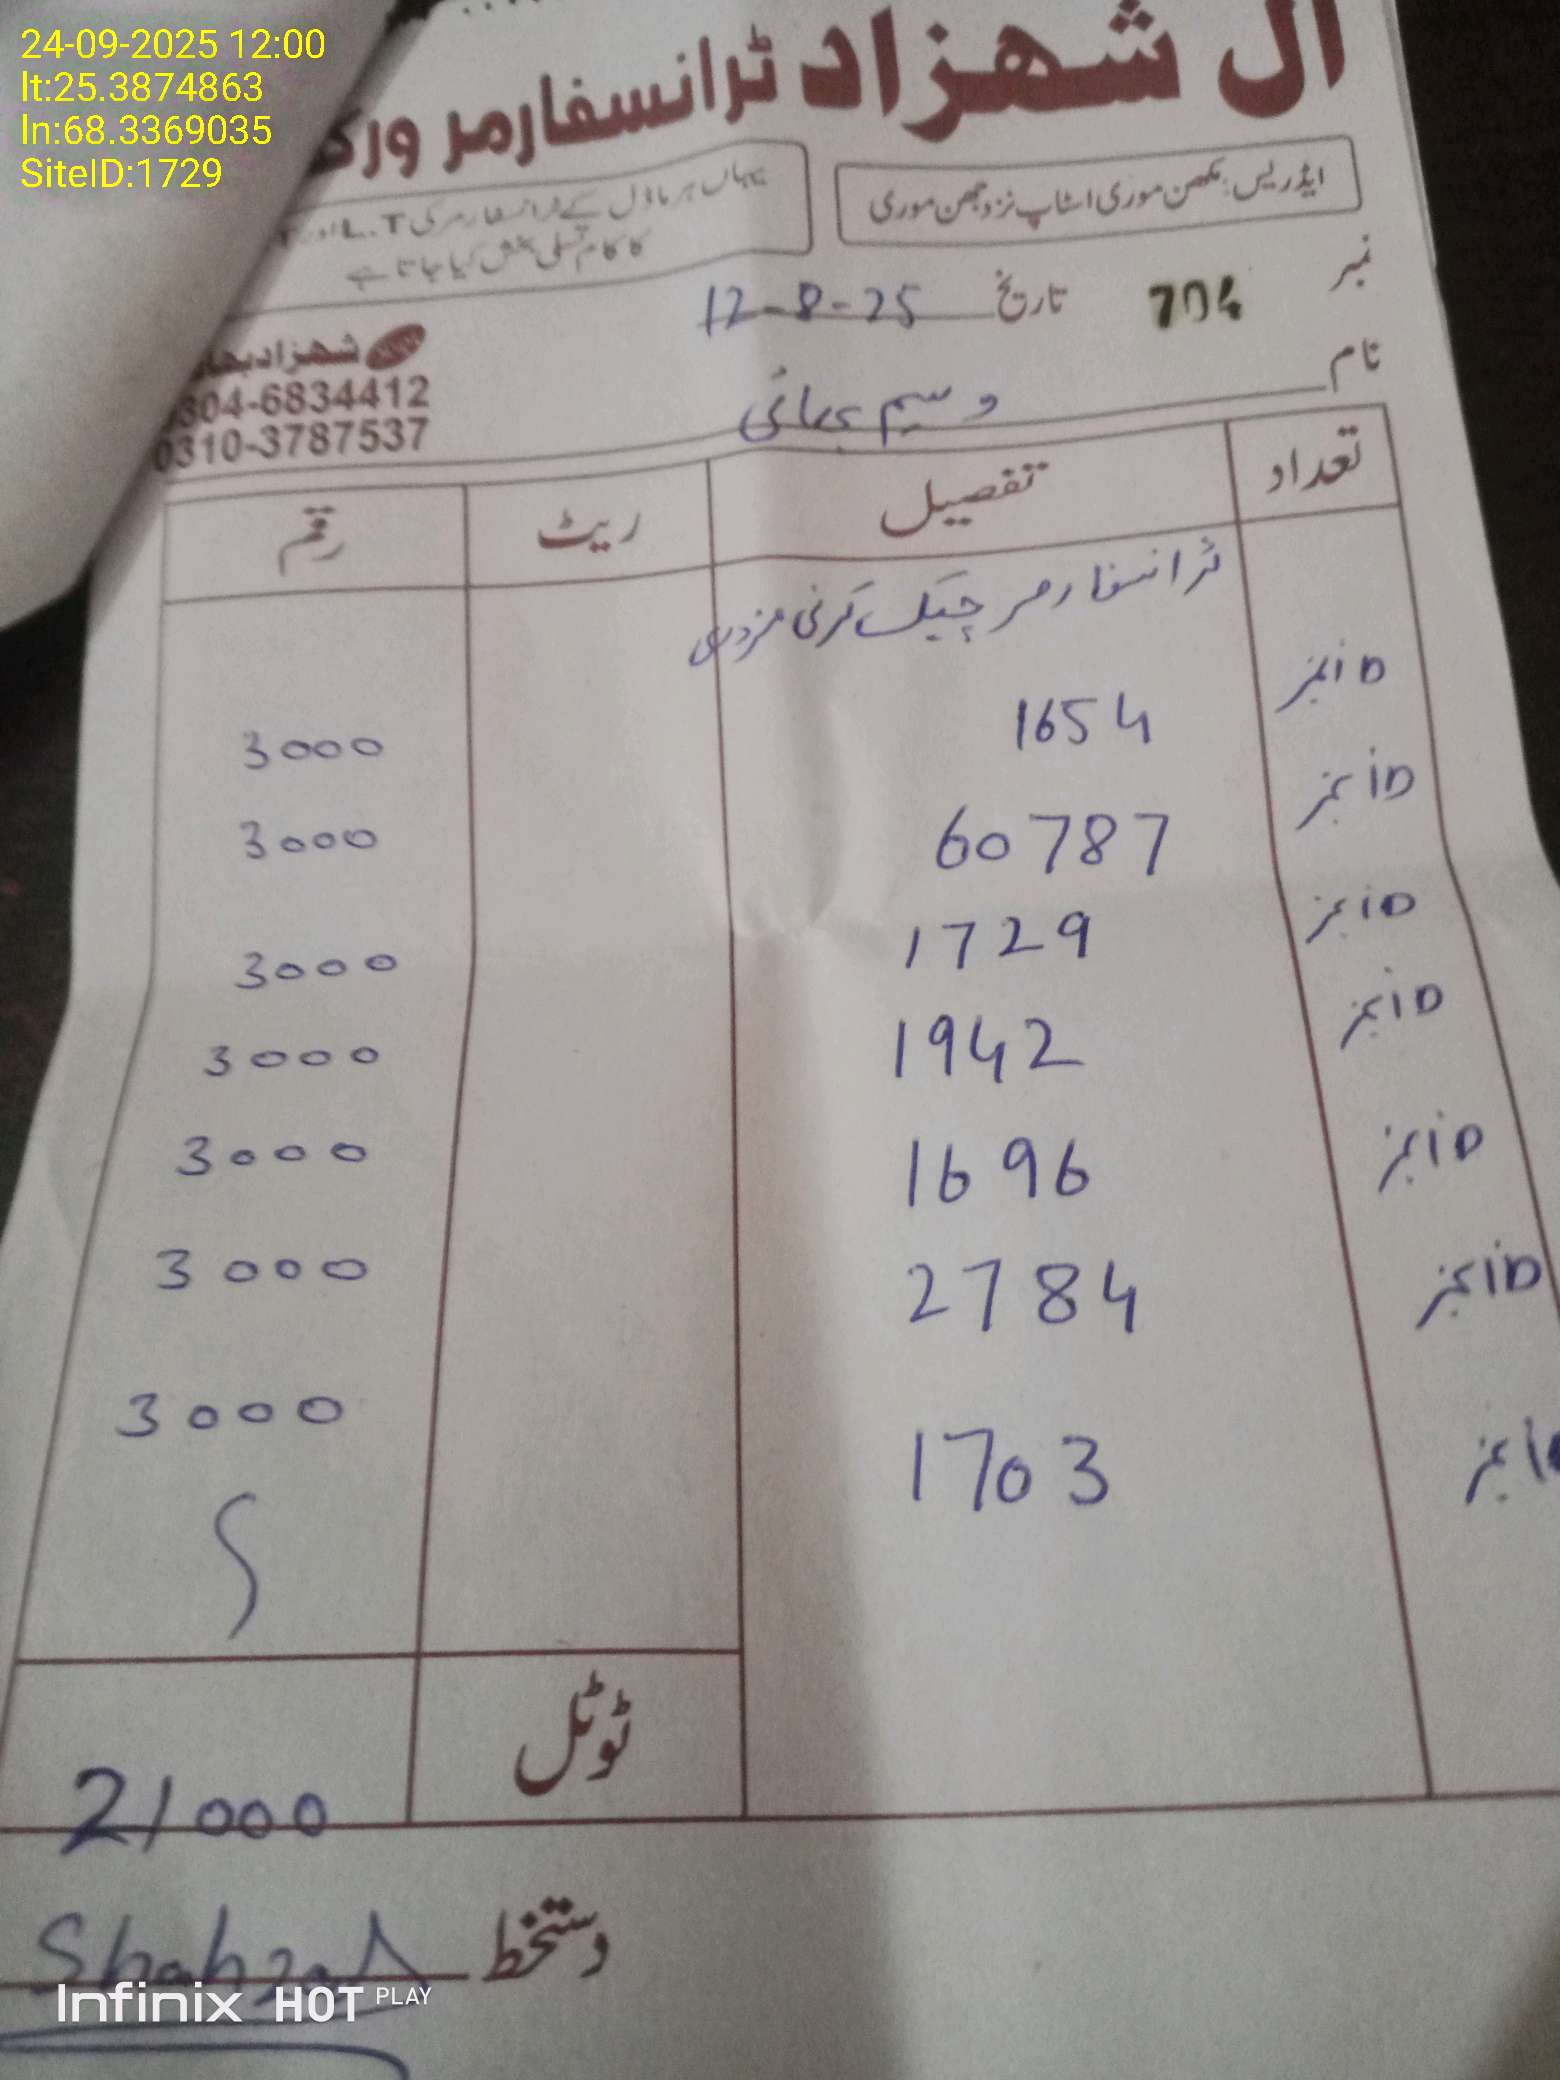 24-09-2025 12:00
lt:25.3874863
ln:68.3369035
SiteID:1729
ال شہزاد ٹرانسفارمر ورک
ایڈریس: مکھن موری اسٹاپ نزد جھن موری
یہاں ہر ماڈل کے ٹرانسفارمر کی L.T اور
کا کام تسلی بخش کیا جاتا ہے
نمبر 704 تاریخ 12-8-25
شہزاد بھا
304-6834412
0310-3787537
نام وسیم بھائی
تعداد تفصیل ریٹ رقم
ٹرانسفارمر چیک کرنی مزدوری
ID نمبر 1654 3000
ID نمبر 60787 3000
ID نمبر 1729 3000
ID نمبر 1942 3000
ID نمبر 1696 3000
ID نمبر 2784 3000
نمبر 1703 3000
ٹوٹل 21000
دستخط Shahzad
Infinix HOT PLAY